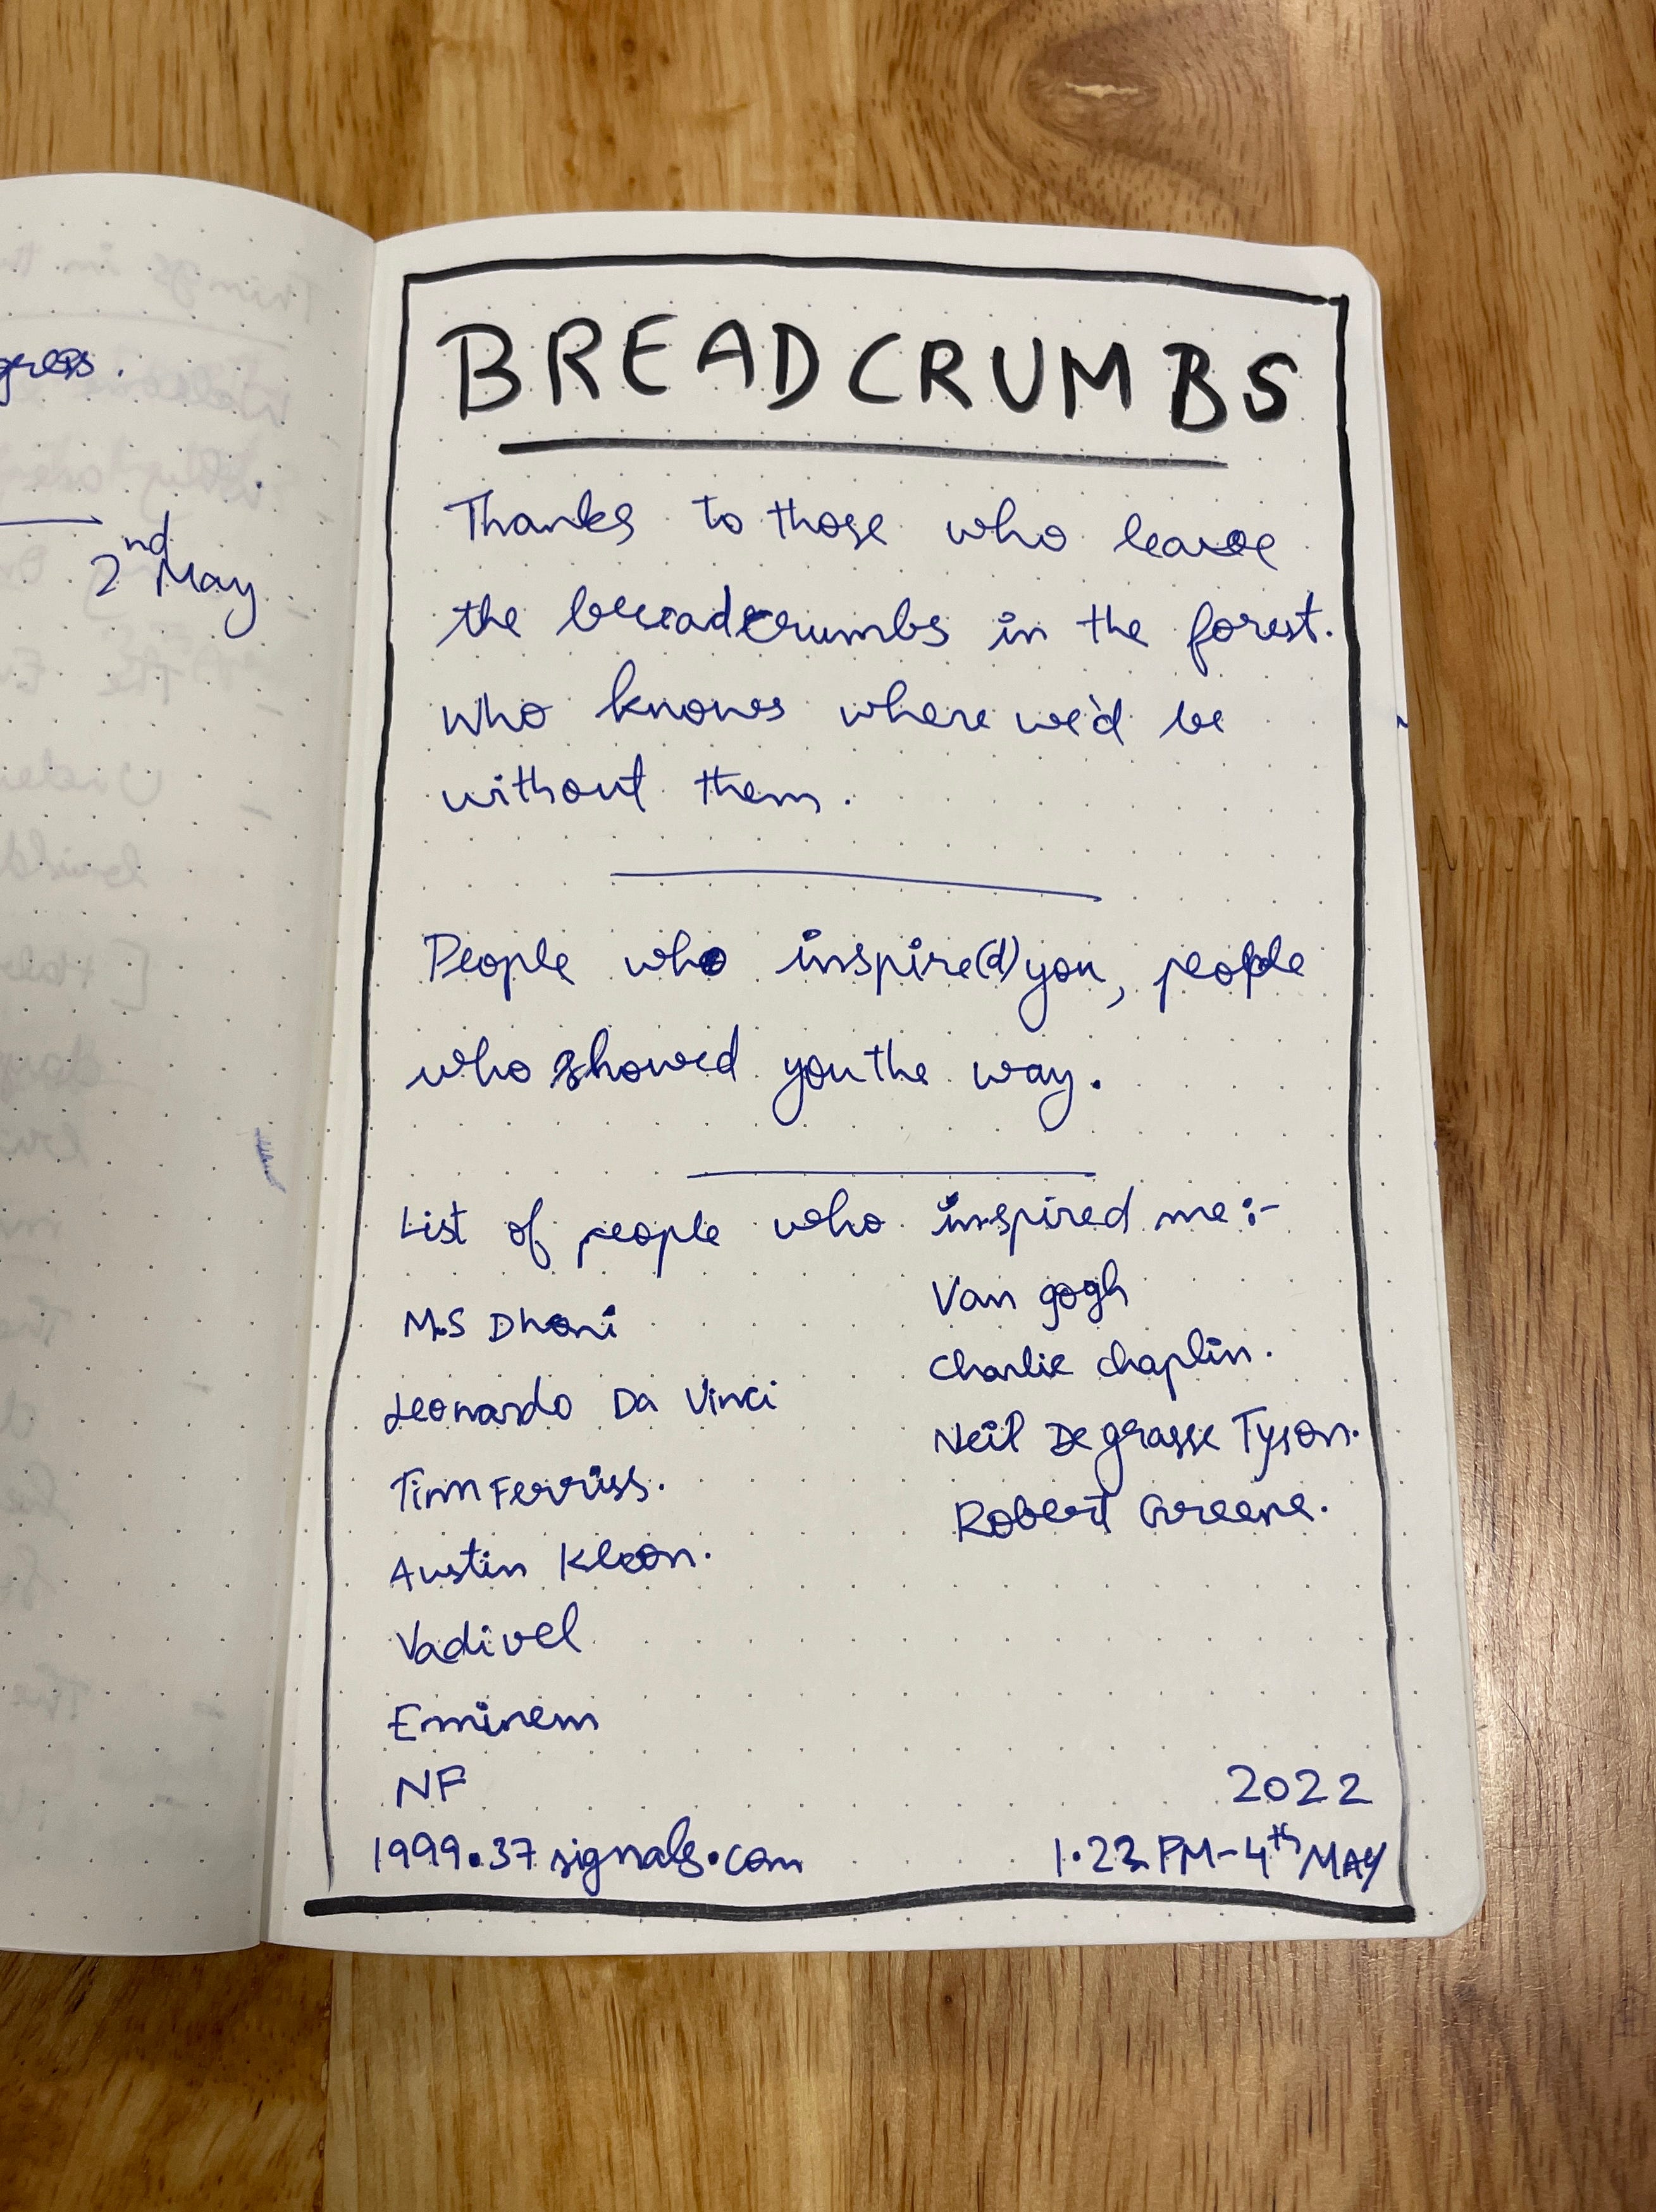 gress.
2nd May
BREADCRUMBS
Thanks to those who leave
the breadcrumbs in the forest.
Who knows where we'd be
without them.
People who inspire(d) you, people
who showed you the way.
List of people who inspired me:-
M.S Dhoni
Leonardo Da Vinci
Tim Ferriss.
Austin Kleon.
Vadivel
Eminem
NF
1999.37signals.com
Van gogh
Charlie chaplin.
Neil De grasse Tyson.
Robert Greene.
2022
1.23 PM - 4th MAY